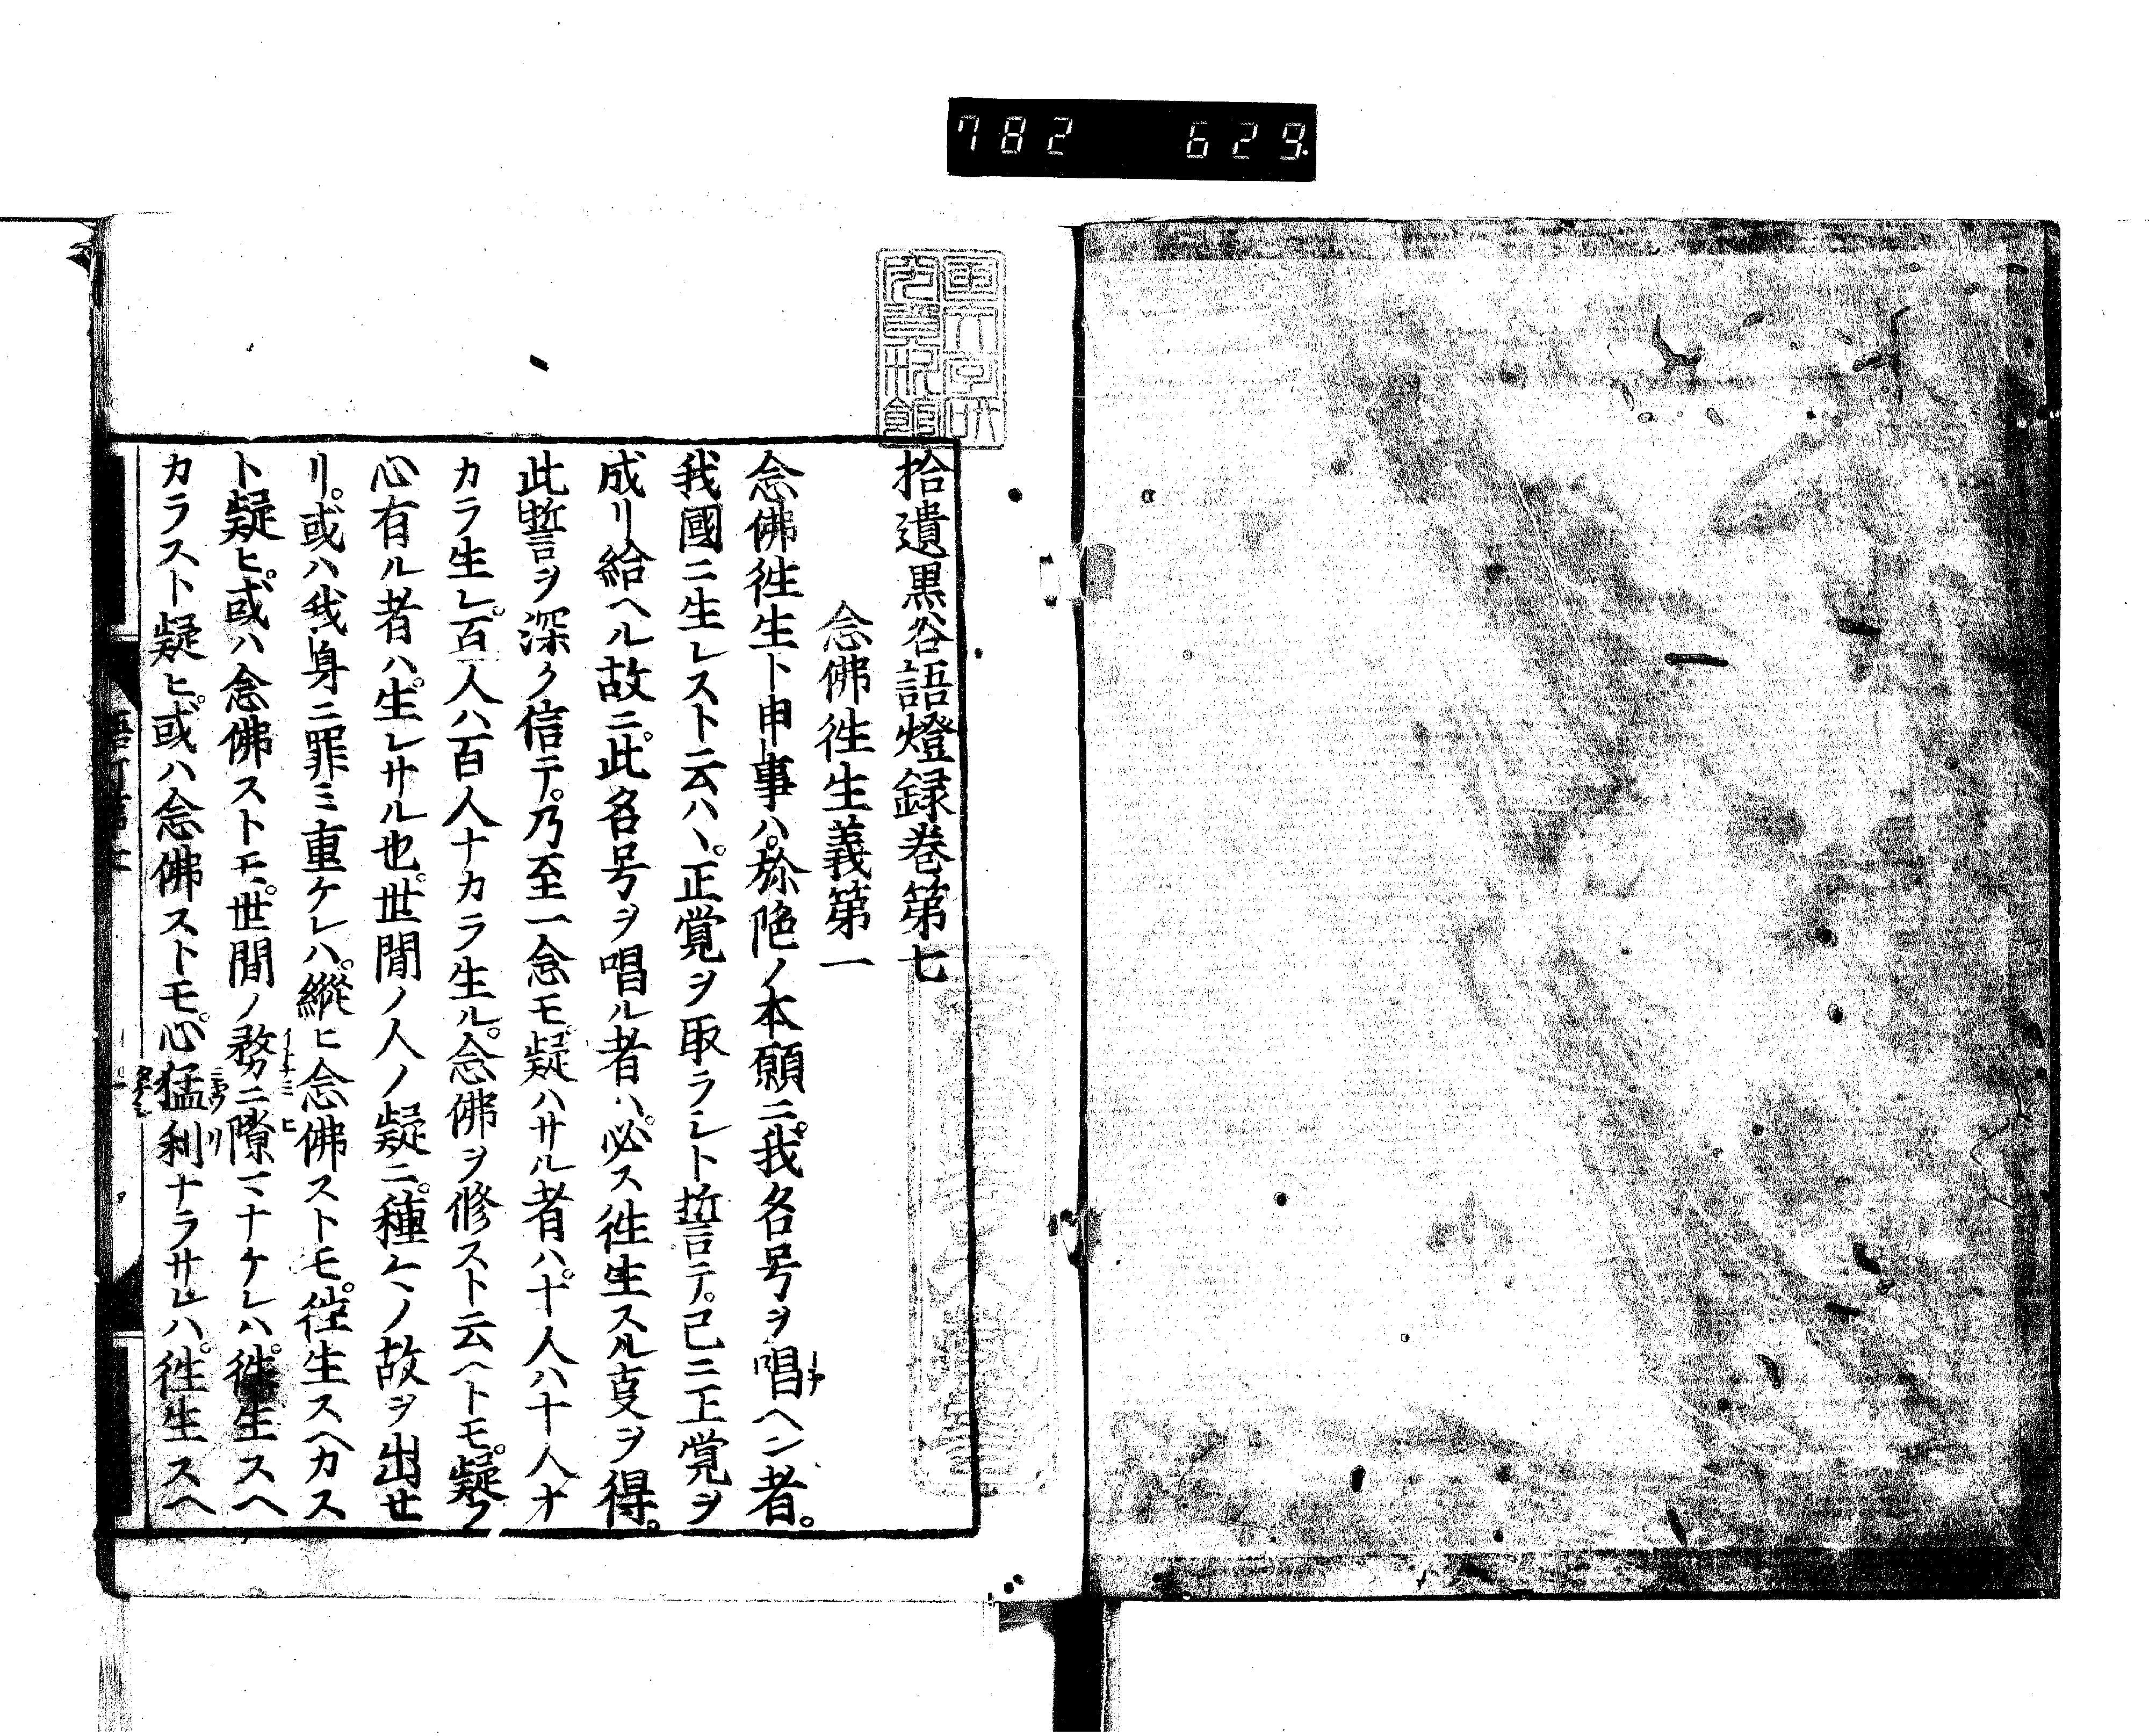 782 629
拾遺黒谷語燈録巻第七
念佛徃生義第一
念佛徃生ト申事ハ。弥陁ノ本願ニ。我名号ヲ唱ヘン者。
我國ニ生レスト云ハヽ。正覚ヲ取ラレト誓テ。已ニ正覚ヲ
成リ給ヘル故ニ。此名号ヲ唱ル者ハ。必ス徃生スル叓ヲ得。
此誓ヲ深ク信テ。乃至一念モ疑ハサル者ハ。十人ハ十人ナ
カラ生レ。百人ハ百人ナカラ生ル。念佛ヲ修スト云ヘトモ。疑フ
心有ル者ハ。生レサル也。世間ノ人ノ疑ニ。種〻ノ故ヲ出セ
リ。或ハ我身ニ罪ミ重ケレハ。縦ヒ念佛ストモ。徃生スヘカス
ト疑ヒ。或ハ念佛ストモ。世間ノ務ニ隙マナケレハ。徃生スヘ
カラスト疑ヒ。或ハ念佛ストモ。心猛利ナラサレハ。徃生スヘ